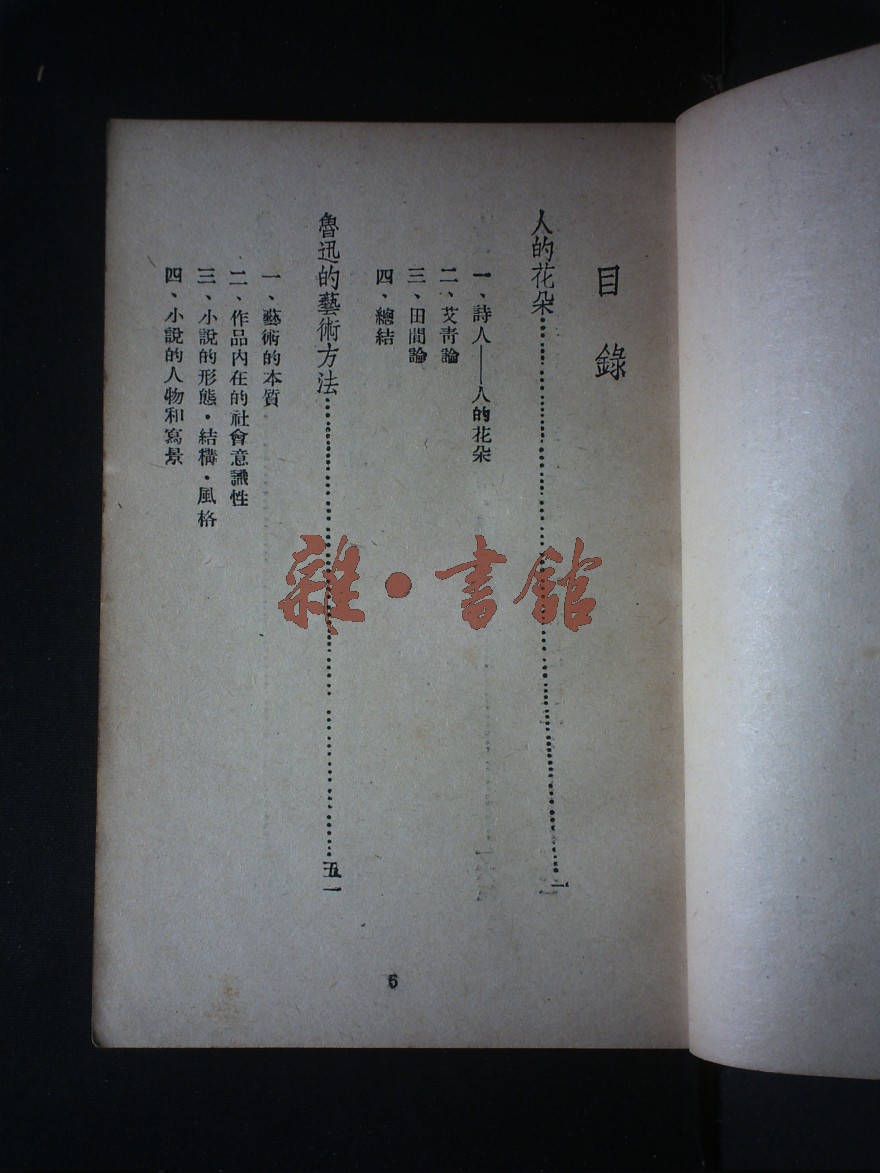 目錄
人的花朵……一
一、詩人——人的花朵
二、艾青論
三、田間論
四、總結
魯迅的藝術方法……五一
一、藝術的本質
二、作品內在的社會意識性
三、小說的形態·結構·風格
四、小說的人物和寫景
雜·書館
5